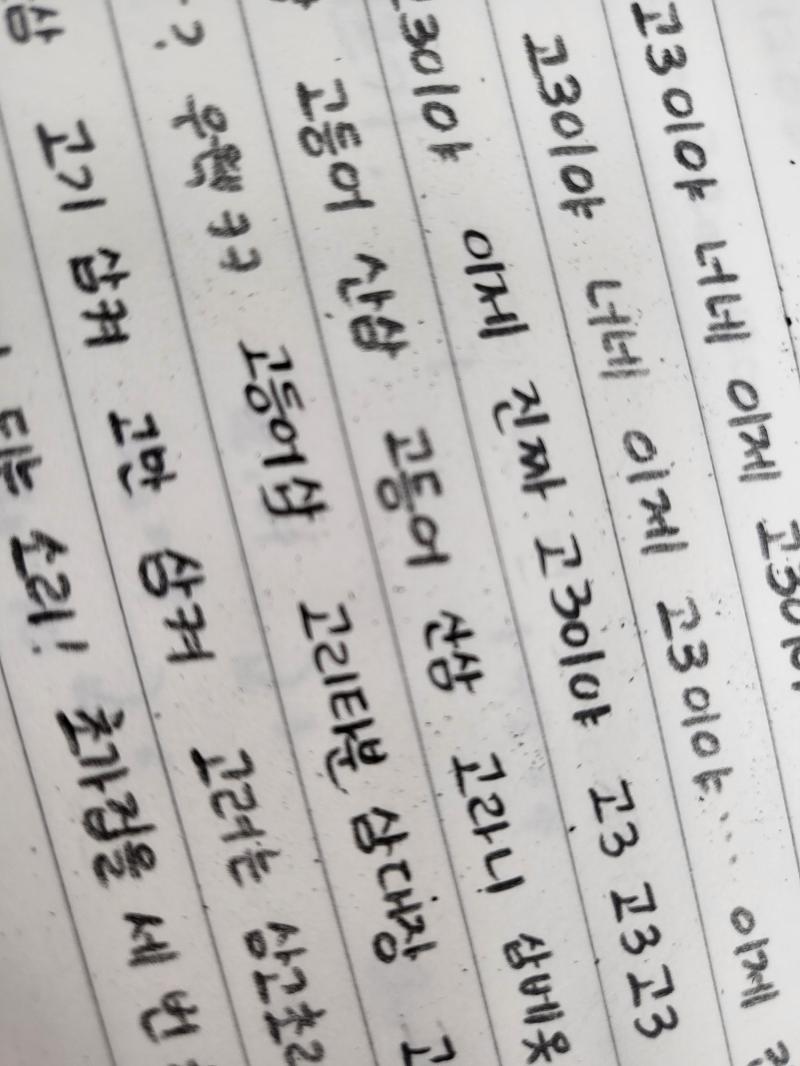 고3이야 너네 이제 고3이야
고3이야 너네 이제 고3이야... 이제
고3이야 이제 진짜 고3이야 고3 고3 고3
고등어 산삼 고등어 산삼 고라니 삼베옷
? 우헥 ㅋㅋ 고등어삼 고리타분 삼대장 고
삼 고기 삼켜 고만 삼켜 고려는 삼고초려
타는 소리! 초가집을 세 번